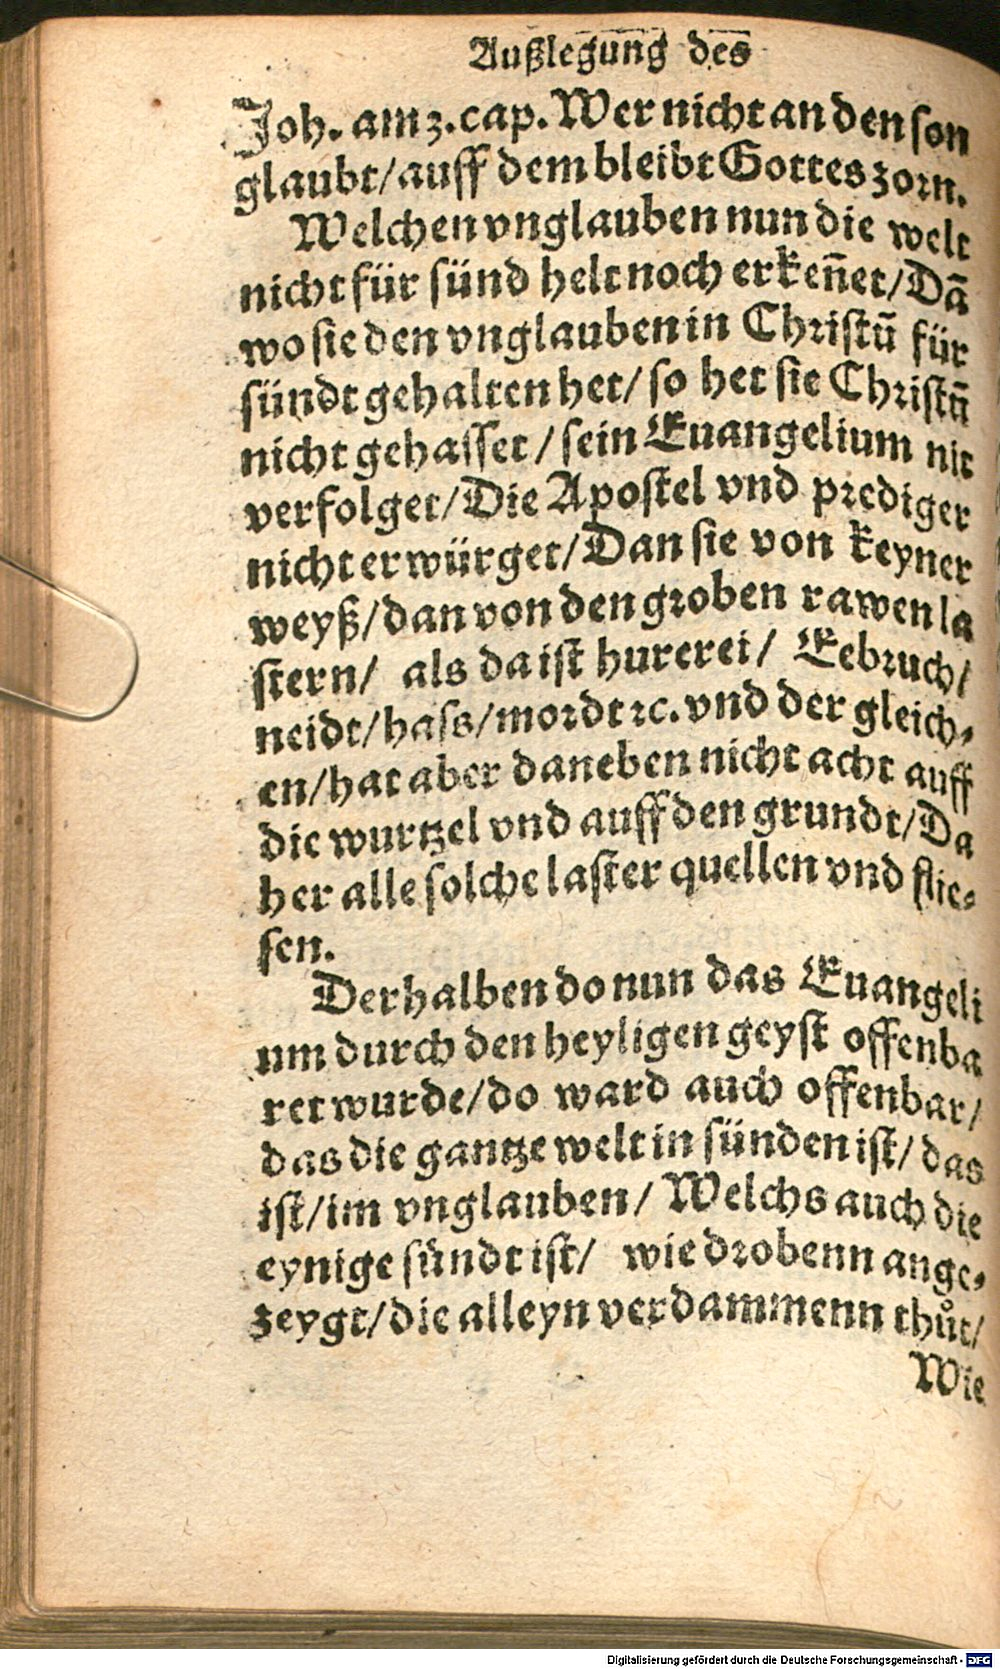 Außlegung des
Joh. am 3. cap. Wer nicht an den son
glaubt / auff dem bleibt Gottes zorn.
Welchen vnglauben nun die welt
nicht für sünd helt noch erkeñet / Dã
wo sie den vnglauben in Christũ für
sündt gehalten het / so het sie Christũ
nicht gehasset / sein Euangelium nit
verfolget / Die Apostel vnd prediger
nicht erwürget / Dan sie von keyner
weyß / dan von den groben rawen la
stern / als da ist hurerei / Eebruch /
neidt / hass / mordt ꝛc. vnd der gleich⸗
en / hat aber daneben nicht acht auff
die wurtzel vnd auff den grundt / Da
her alle solche laster quellen vnd flie⸗
sen.
Derhalben do nun das Euangeli
um durch den heyligen geyst offenba
ret wurde / do ward auch offenbar /
das die gantze welt in sünden ist / das
ist / im vnglauben / Welchs auch die
eynige sündt ist / wie drobenn ange⸗
zeygt / die alleyn verdammenn thůt /
Wie
Digitalisierung gefördert durch die Deutsche Forschungsgemeinschaft - DFG